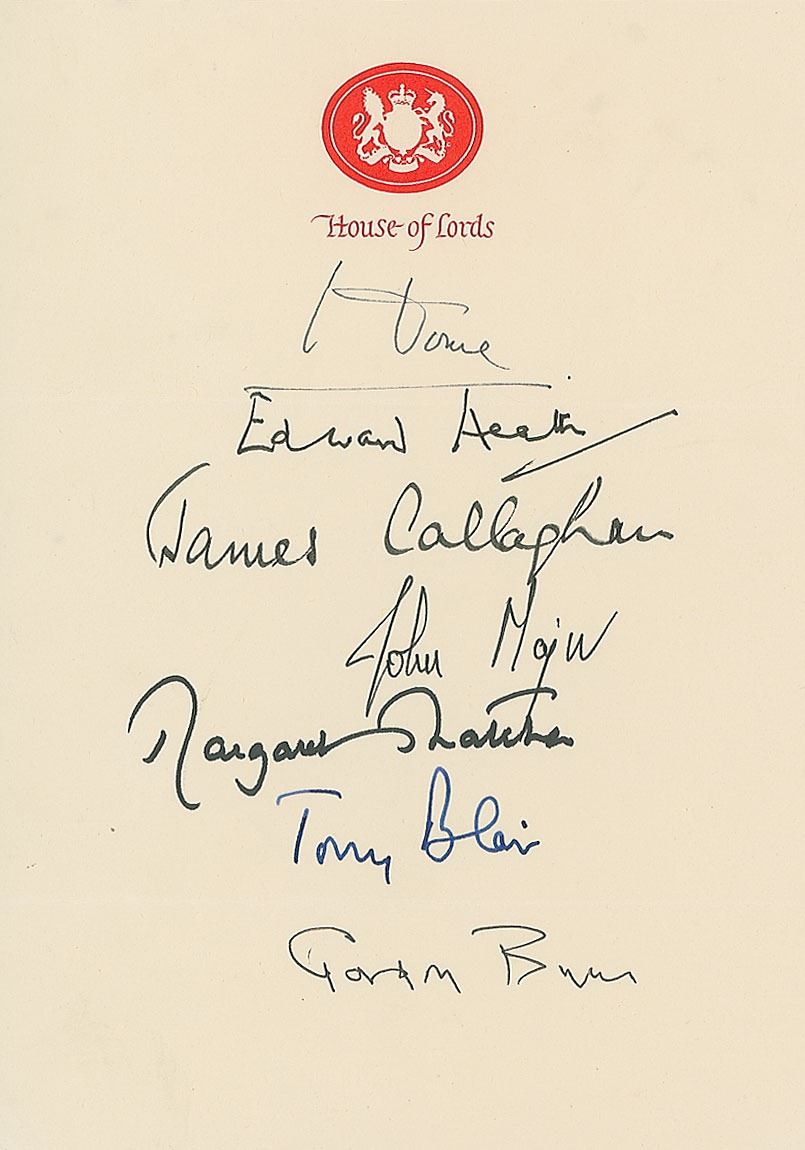 House of Lords
Home
Edward Heath
James Callaghan
John Major
Margaret Thatcher
Tony Blair
Gordon Brown